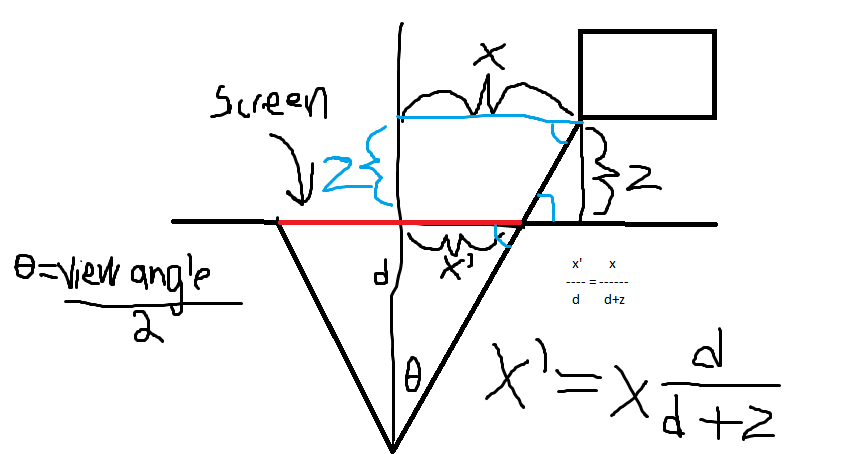 x
screen
z
z
x'
d
θ=view angle
2
x' x
---- = ------
d d+z
θ
x'=x d
d+z